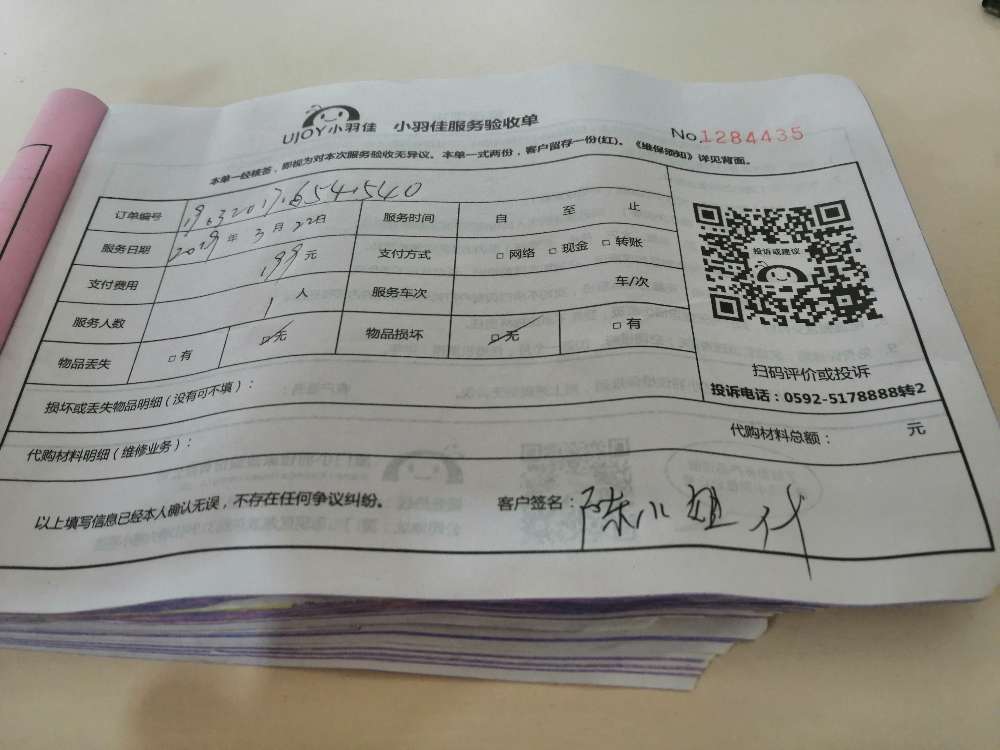 UJOY小羽佳 小羽佳服务验收单
No.1284435
本单一经核签，即视为对本次服务验收无异议。本单一式两份，客户留存一份(红)。《维保须知》详见背面。
订单编号
服务日期 2019年3月22日 服务时间 自 至 止
支付费用 199元 支付方式 □网络 □现金 □转账
服务人数 1人 服务车次 车/次
物品丢失 □有 □无 物品损坏 □无 □有
投诉或建议
扫码评价或投诉
投诉电话：0592-5178888转2
损坏或丢失物品明细（没有可不填）：
代购材料明细（维修业务）： 代购材料总额： 元
以上填写信息已经本人确认无误，不存在任何争议纠纷。 客户签名：陈小姐 代